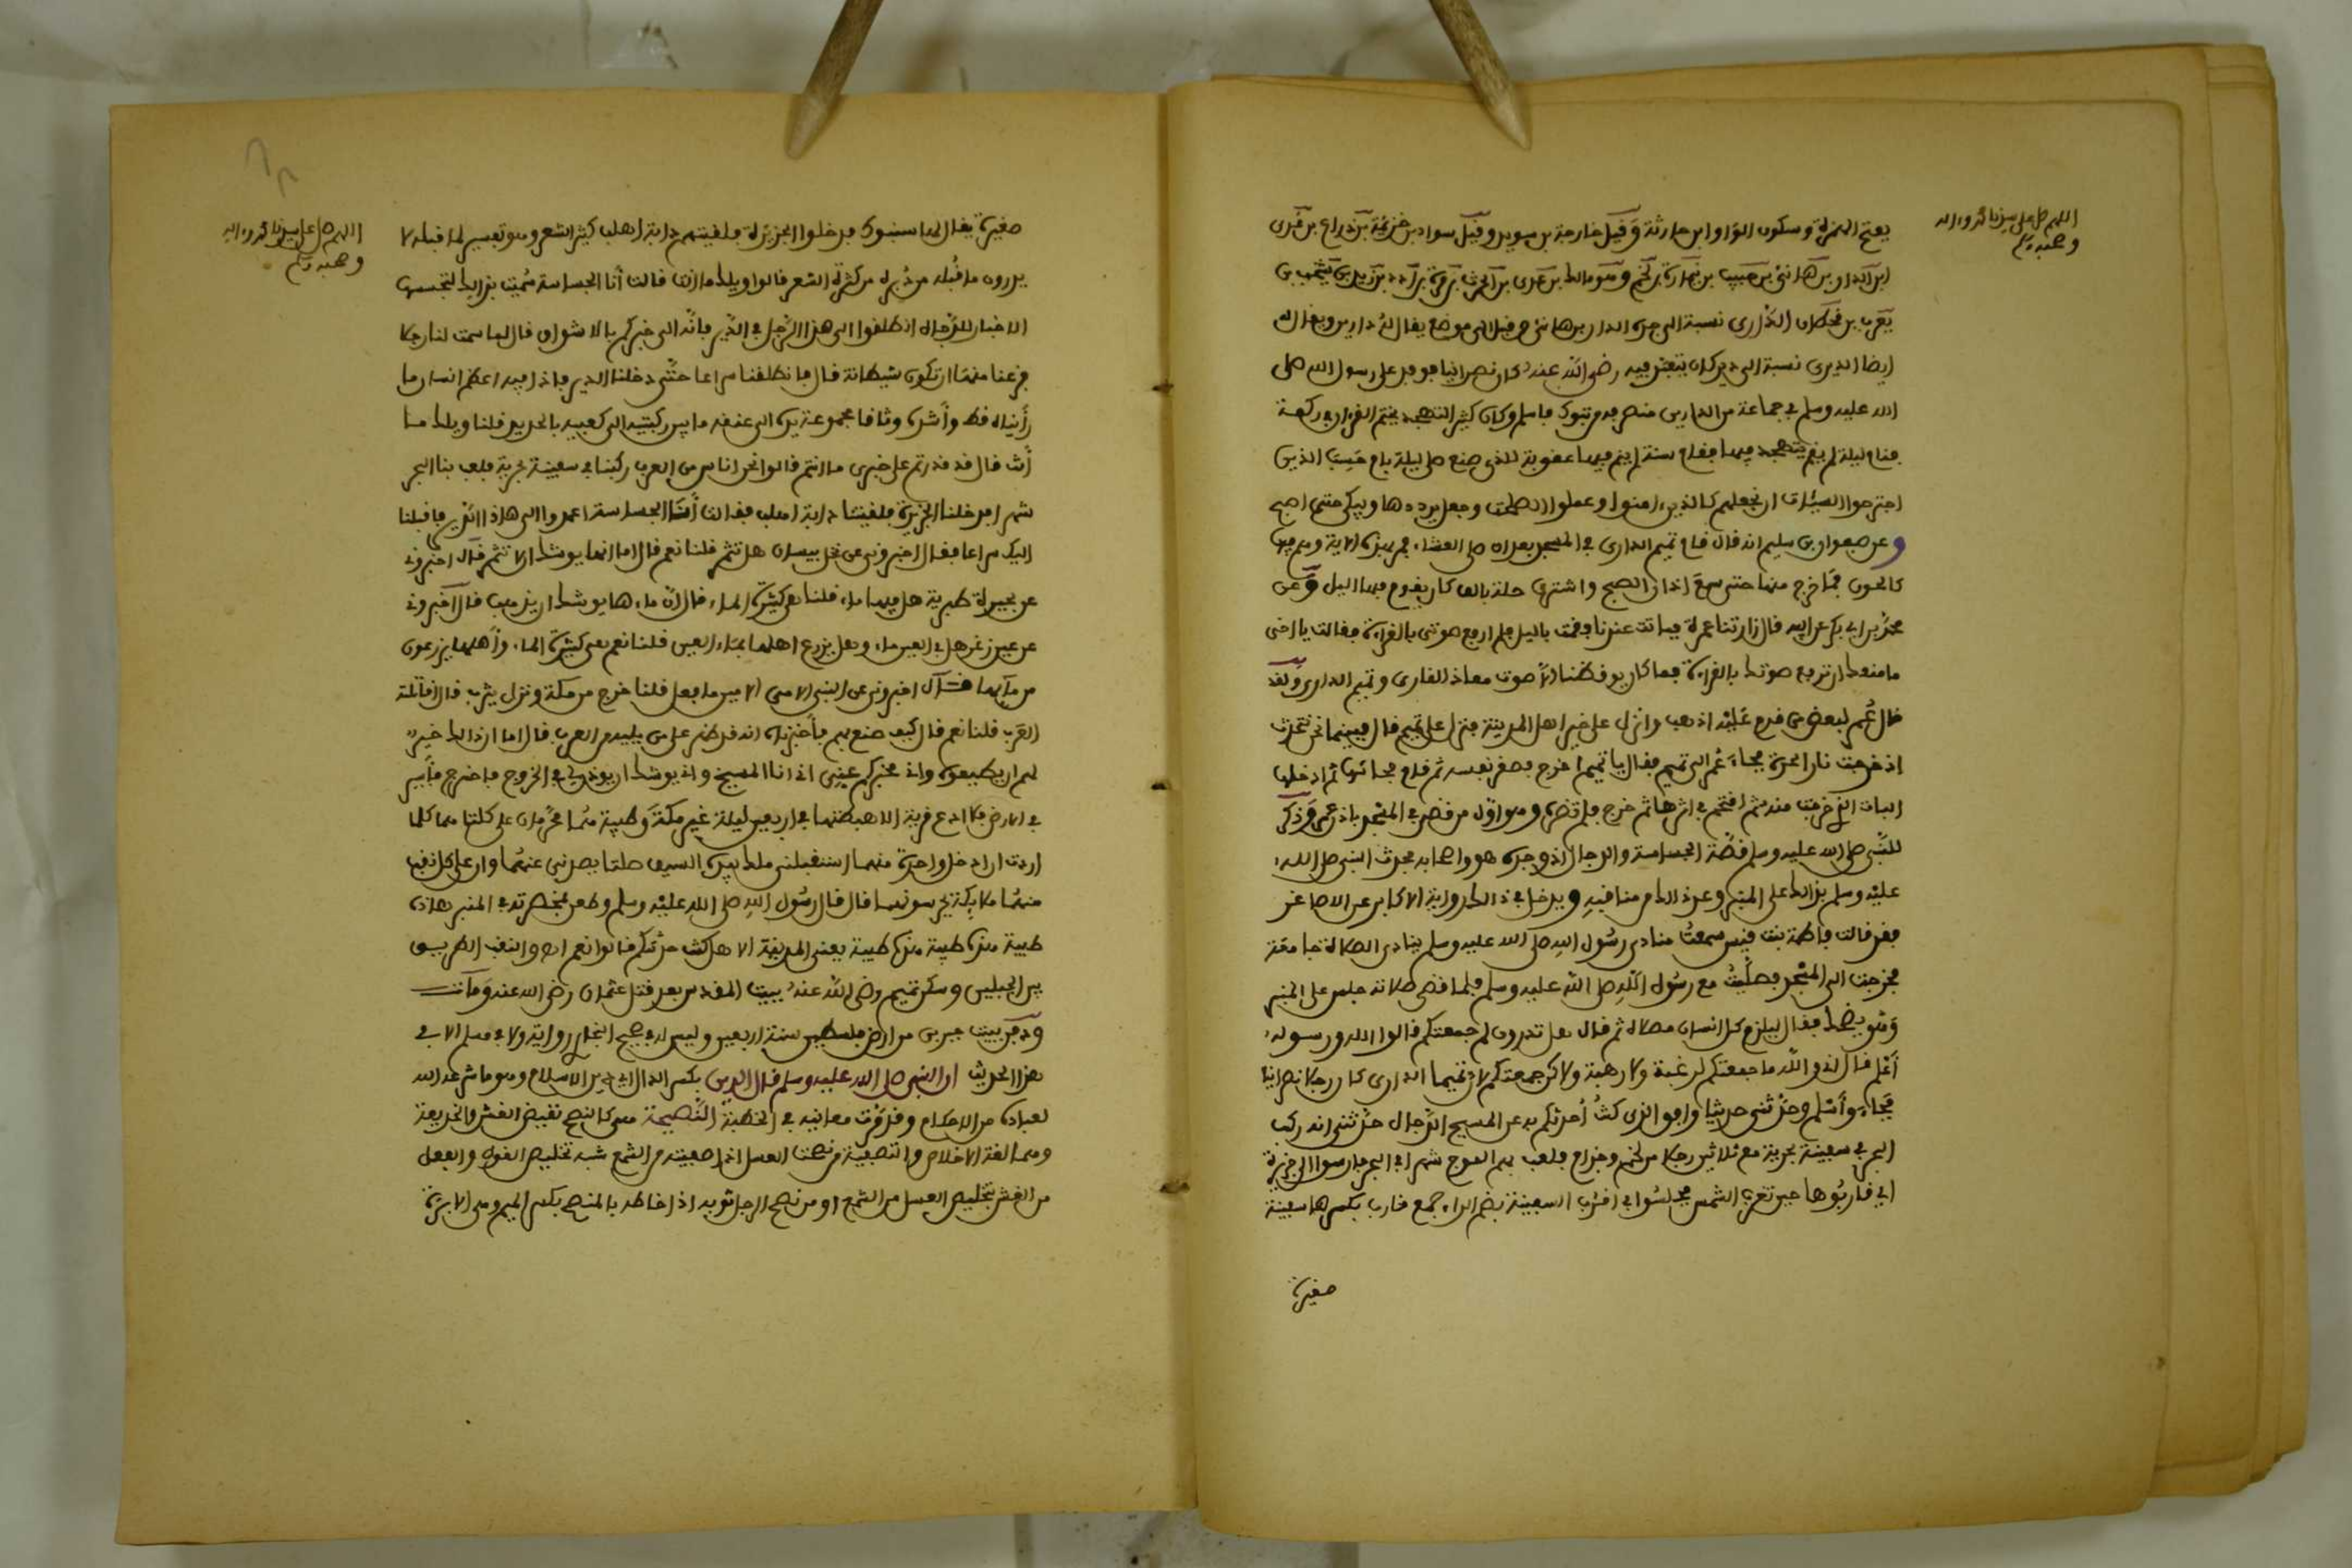 اللهم صل على سيدنا محمد وءاله
وصحبه وسلم
بفتح الهمزة وسكون الواو ابن حارثة وقيل خارجة بن سويد وقيل سواد بن خزيمة بن ذراع بن عدي
ابن الدار بن هانئ بن حبيب بن نمارة بن لخم وهو مالك بن عدي بن الحرث بن مرة بن أدد بن زيد بن يشجب بن
يعرب بن قحطان الداري نسبة الى جده الدار بن هانئ وقيل الى موضع يقال له دارين ويقال له
ايضا الديري نسبة الى دير كان يتعبد فيه رضي الله عنه كان نصرانيا فوفد على رسول الله صلى
الله عليه وسلم في جماعة من الداريين منصرفه من تبوك فاسلم وكان كثير التهجد يختم القرءان في ركعة
فنام ليلة لم يقم يتهجد فيها فقام سنة لم ينم فيها عقوبة للذي صنع صلى ليلة بام حسب الذين
اجترحوا السيئات ان نجعلهم كالذين ءامنوا وعملوا الصلحت وجعل يرددها ويبكي حتى اصبح
وعن صفوان بن سليم انه قال قام تميم الداري في المسجد بعد ان صلى العشاء فمر بهذه الاية وهم فيها
كالحون فما خرج منها حتى سمع اذان الصبح واشترى حلة بالف كان يقوم فيها اليل وعن
محمد بن ابي بكر عن ابيه قال زارتنا عمرة فباتت عندنا فقمت باليل فلم ارفع صوتي بالقراءة فقالت يا اخي
ما منعك ان ترفع صوتك بالقراءة فما كان يوقظنا الا صوت معاذ القاري وتميم الداري ولقد
قال عمر لبعض من قدم عليه اذهب وانزل على خير اهل المدينة فنزل على تميم قال فبينما نحن نتحدث
اذ خرجت نار الحرة فجاء عمر الى تميم فقال يا تميم اخرج فصغر نفسه ثم قام فحاشها ثم ادخلها
الباب الذي خرجت منه ثم اقتحم في اثرها ثم خرج فلم تضره وهو اول من قص في المسجد باذن عمر وذكر
للنبي صلى الله عليه وسلم قصة الجساسة والدجال اذ وجده هو واصحابه فحدث النبي صلى الله
عليه وسلم بذالك على المنبر وعد ذالك من مناقبه ويدخل في ذالك رواية الاكابر عن الاصاغر
فقد قالت فاطمة بنت قيس سمعت منادي رسول الله صلى الله عليه وسلم ينادي الصلاة جامعة
فخرجت الى المسجد فصليت مع رسول الله صلى الله عليه وسلم فلما قضى صلاته جلس على المنبر
وهو يضحك فقال ليلزم كل انسان مصلاه ثم قال هل تدرون لم جمعتكم قالوا الله ورسوله
أعلم قال اني والله ما جمعتكم لرغبة ولا رهبة ولاكن جمعتكم لان تميما الداري كان رجلا نصرانيا
فجاء وأسلم وحدثني حديثا وافق الذي كنت أحدثكم به عن المسيح الدجال حدثني انه ركب
البحر في سفينة بحرية مع ثلاثين رجلا من لخم وجذام فلعب بهم الموج شهرا في البحر فارسوا الى جزيرة
اي قاربوها حين تغرب الشمس فجلسوا في اقرب السفينة بضم الراء جمع قارب بكسرها سفينة
صغيرة
اللهم صل على سيدنا محمد وءاله
وصحبه وسلم
صغيرة يقال لها سنبوك فدخلوا الجزيرة فلقيتهم دابة اهلب كثير الشعر وهو تفسير لما قبله لا
يدرون ما قبله من دبره من كثرة الشعر قالوا ويلك ما انت قالت أنا الجساسة سميت بذالك لتجسسها
الاخبار للدجال انطلقوا الى هذا الرجل في الدير فانه الى خبركم بالاشواق قال لما سمت لنا رجلا
فزعنا منها ان تكون شيطانة قال فانطلقنا سراعا حتى دخلنا الدير فاذا فيه اعظم انسان ما
رأيناه قط وأشده وثاقا مجموعة يده الى عنقه ما بين ركبتيه الى كعبيه بالحديد قلنا ويلك ما
أنت قال قد قدرتم على خبري ما انتم قالوا نحن اناس من العرب ركبنا في سفينة بحرية فلعب بنا البحر
شهرا فدخلنا الجزيرة فلقيتنا دابة اهلب فقالت أنا الجساسة اعمدوا الى هاذا الدير فاقبلنا
اليك سراعا فقال اخبروني عن نخل بيسان هل تثمر قلنا نعم قال اما انها يوشك ان لا تثمر قال اخبروني
عن بحيرة طبرية هل فيها ماء قلنا هي كثيرة الماء قال ان ماءها يوشك ان يذهب قال اخبروني
عن عين زغر هل في العين ماء وهل يزرع اهلها بماء العين قلنا نعم هي كثيرة الماء وأهلها يزرعون
من مآئها قال اخبروني عن النبي الامي الامين ما فعل قلنا خرج من مكة ونزل يثرب قال اقاتله
العرب قلنا نعم قال كيف صنع بهم فأخبرناه انه قد ظهر على من يليه من العرب قال اما ان ذالك خير
لهم ان يطيعوه واني مخبركم عني اني انا المسيح واني يوشك ان يوذن لي في الخروج فاخرج فأسير
في الارض فلا ادع قرية الا هبطتها في اربعين ليلة غير مكة وطيبة هما محرمتان علي كلتاهما كلما
اردت ان ادخل واحدة منهما استقبلني ملك بيده السيف صلتا يصدني عنهما وان على كل نقب
منهما ملايكة يحرسونهما قال قال رسول الله صلى الله عليه وسلم وطعن بمخصرته في المنبر هاذه
طيبة هذه طيبة هذه طيبة يعني المدينة الا هل كنت حدثتكم قالوا نعم اهـ والنقب الطريق
بين الجبلين وسكن تميم رضي الله عنه بيت المقدس بعد قتل عثمان رضي الله عنه ومات
ودفن ببيت جبرين من ارض فلسطين سنة اربعين وليس له في صحيح البخاري رواية ولا في مسلم الا في
هذا الحديث ان النبي صلى الله عليه وسلم قال الدين بكسر الدال اي دين الاسلام وهو ما شرعه الله
لعباده من الاحكام وقد مرت معانيه في الخطبة النصيحة هي كالنصح نقيض الغش والخديعة
وهما لغة الاخلاص والتصفية من نصحت العسل اذا صفيته من الشمع شبه تخليص القول والفعل
من الغش بتخليص العسل من الشمع او من نصح الرجل ثوبه اذا خاطه بالمنصح بكسر الميم وهي الابرة